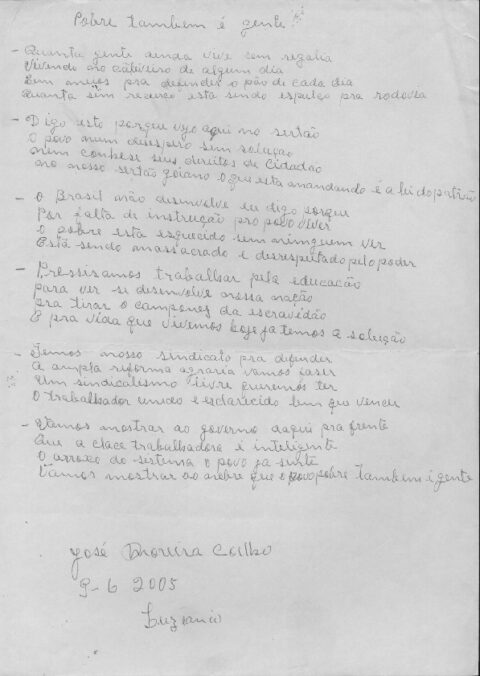 Pobre tambem é gente
- Quanta gente ainda vive sem regalia
Vivendo no cativeiro de algum dia
Sem meios pra defender o pão de cada dia
Quanta sem recurso está sendo espulço pra rodovia
- Digo isto porque vejo aqui no sertão
O povo num desespero sem solução
nem conhese seus direitos de cidadão
no nosso sertão goiano o que esta mandando é a lei do patrão
- O Brasil não desenvolve eu digo porque
Por falta de instrução pro povo viver
O pobre esta esquecido sem ninguem ver
Está sendo massacrado e desrespeitado pelo poder
- Pressisamos trabalhar pela educação
para ver se desenvolve nossa nação
pra tirar o campones da escravidão
E pra vida que vivemos hoje ja temos a solução
- Temos nosso sindicato pra defender
A ampla reforma agraria vamos faser
Um sindicalismo livre queremos ter
O trabalhador unido e esclarecido tem que vencer
- Vamos mostrar ao governo daqui pra frente
Que a clace trabalhadora é inteligente
O arroxo do sistema o povo ja sente
Vamos mostrar ao nobre que o povo pobre tambem é gente
José Moreira Coelho
9-6 2005
Luziania